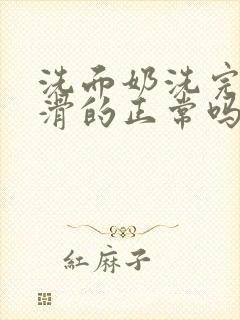 洗而奶洗完
滑的正常吗
紅麻子